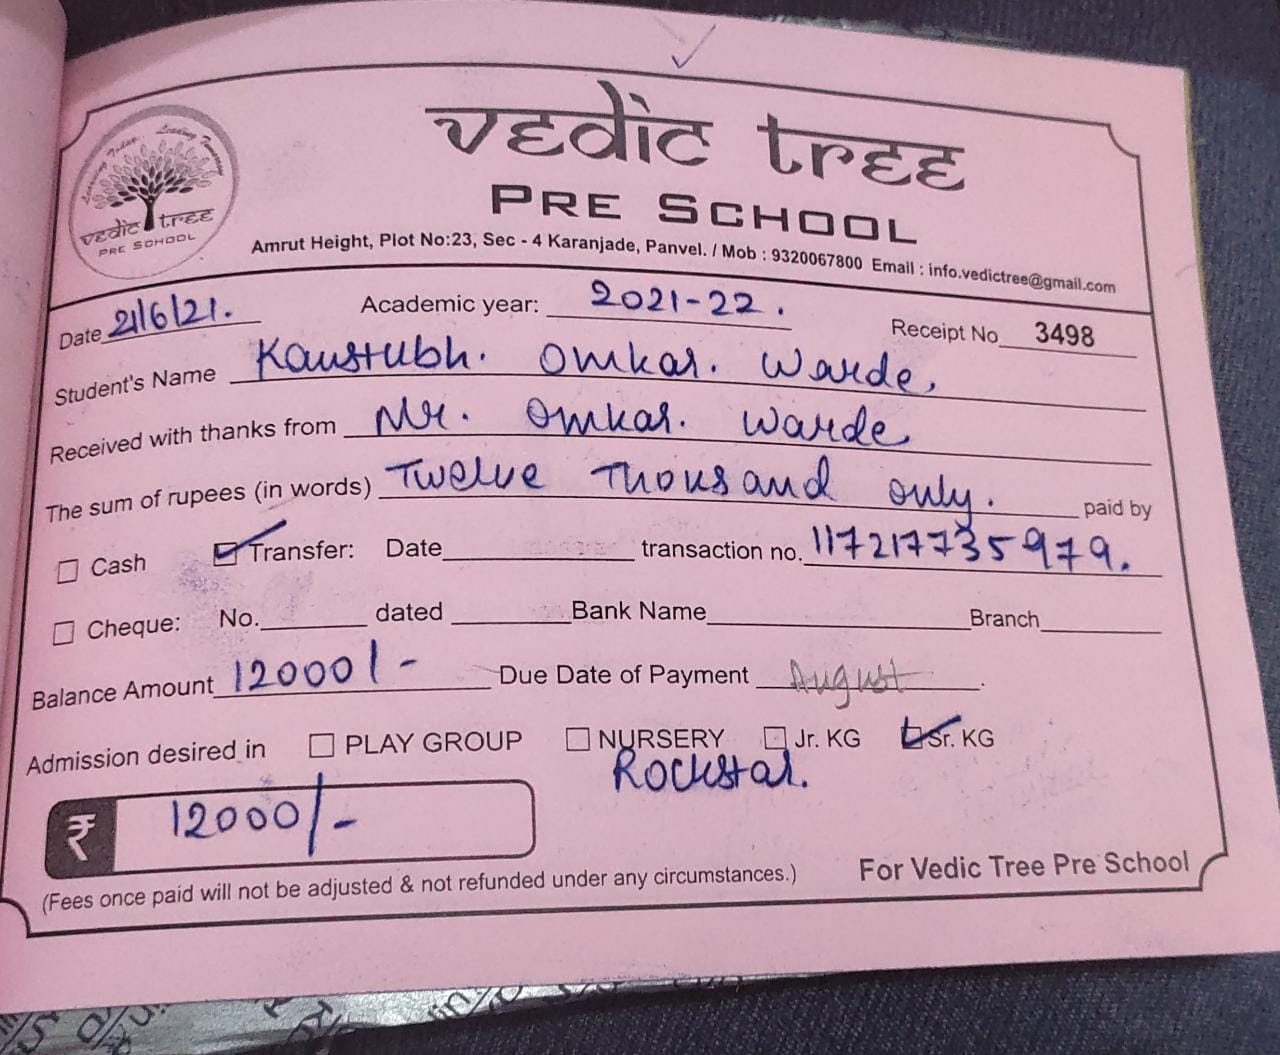 Learning Today Leading Tomorrow
vedic tree
PRE SCHOOL
vedic tree
PRE SCHOOL
Amrut Height, Plot No:23, Sec - 4 Karanjade, Panvel. / Mob : 9320067800 Email : info.vedictree@gmail.com
Date 21/6/21. Academic year: 2021-22. Receipt No 3498
Student's Name Kaustubh. Omkar. Warde.
Received with thanks from Mr. Omkar. Warde
The sum of rupees (in words) Twelve Thousand only. paid by
Cash Transfer: Date transaction no. 117217735979.
Cheque: No. dated Bank Name Branch
Balance Amount 12000/- Due Date of Payment August
Admission desired in PLAY GROUP NURSERY Jr. KG Sr. KG
Rockstar.
₹ 12000/-
(Fees once paid will not be adjusted & not refunded under any circumstances.) For Vedic Tree Pre School